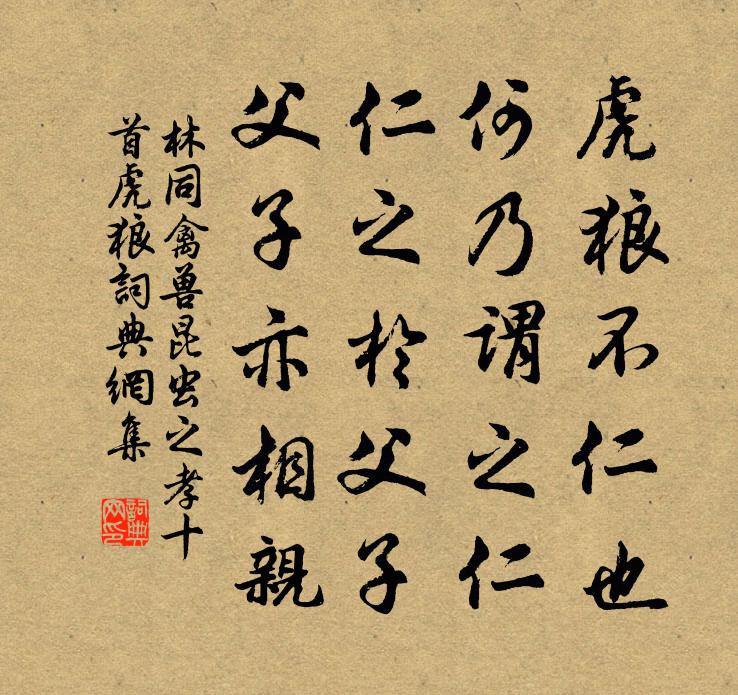 虎狼不仁也
何乃谓之仁
仁之於父子
父子亦相親
林同禽兽昆虫之孝十
首虎狼詞典網集
詞典
网印